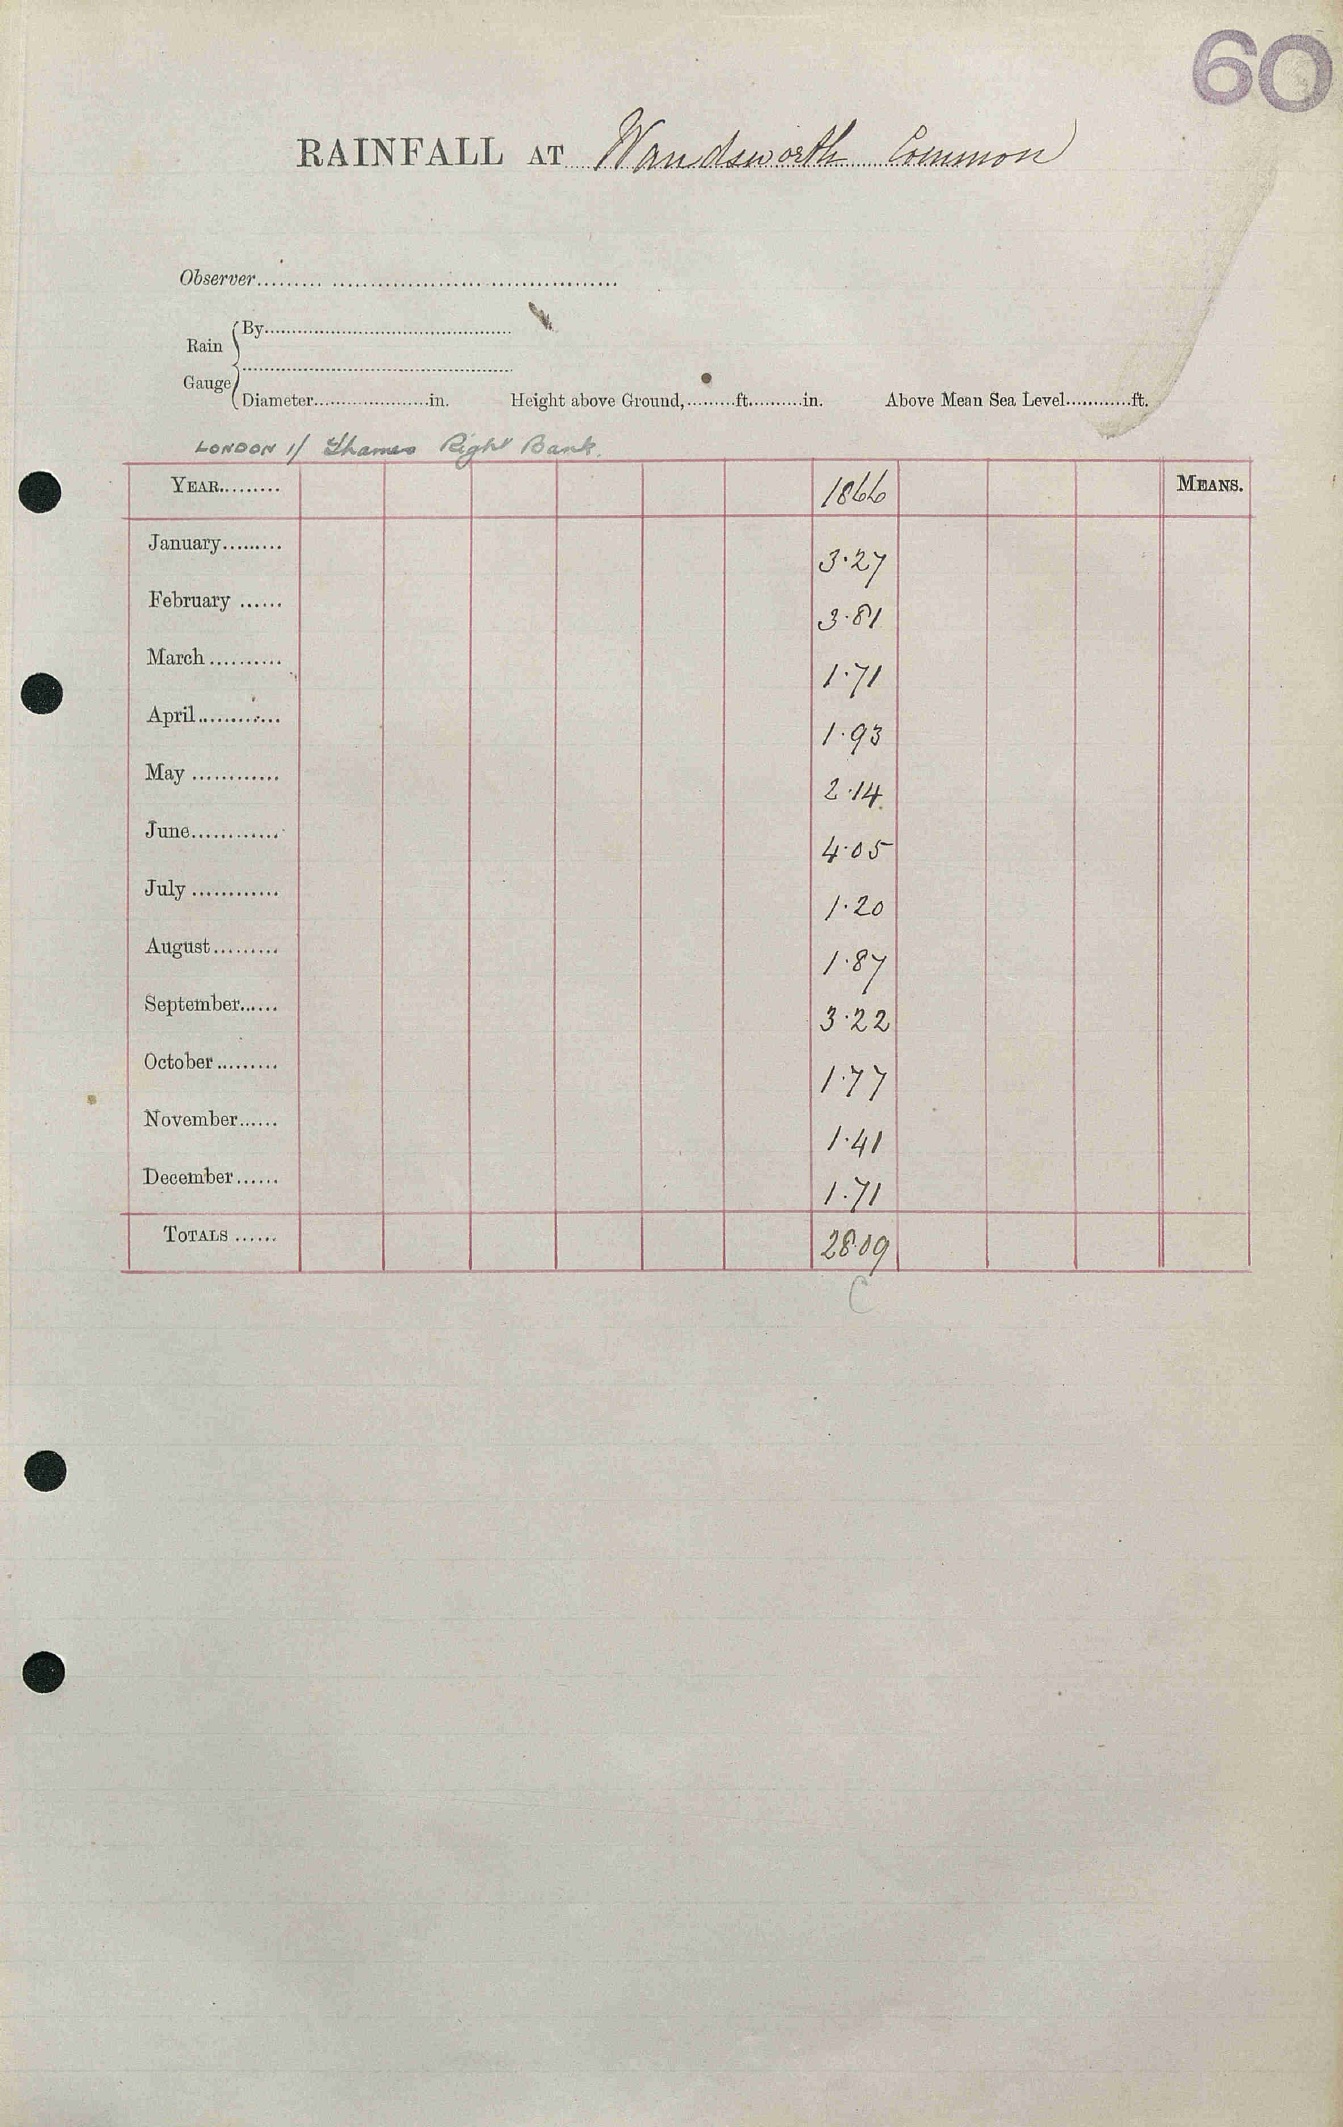 60
RAINFALL AT Wandsworth Common
Observer
Rain Gauge
By
Diameter in. Height above Ground, ft. in. Above Mean Sea Level ft.
LONDON 1/ Thames Right Bank.
YEAR 1866 MEANS.
January 3.27
February 3.81
March 1.71
April 1.93
May 2.14
June 4.05
July 1.20
August 1.87
September 3.22
October 1.77
November 1.41
December 1.71
TOTALS 28.09
C